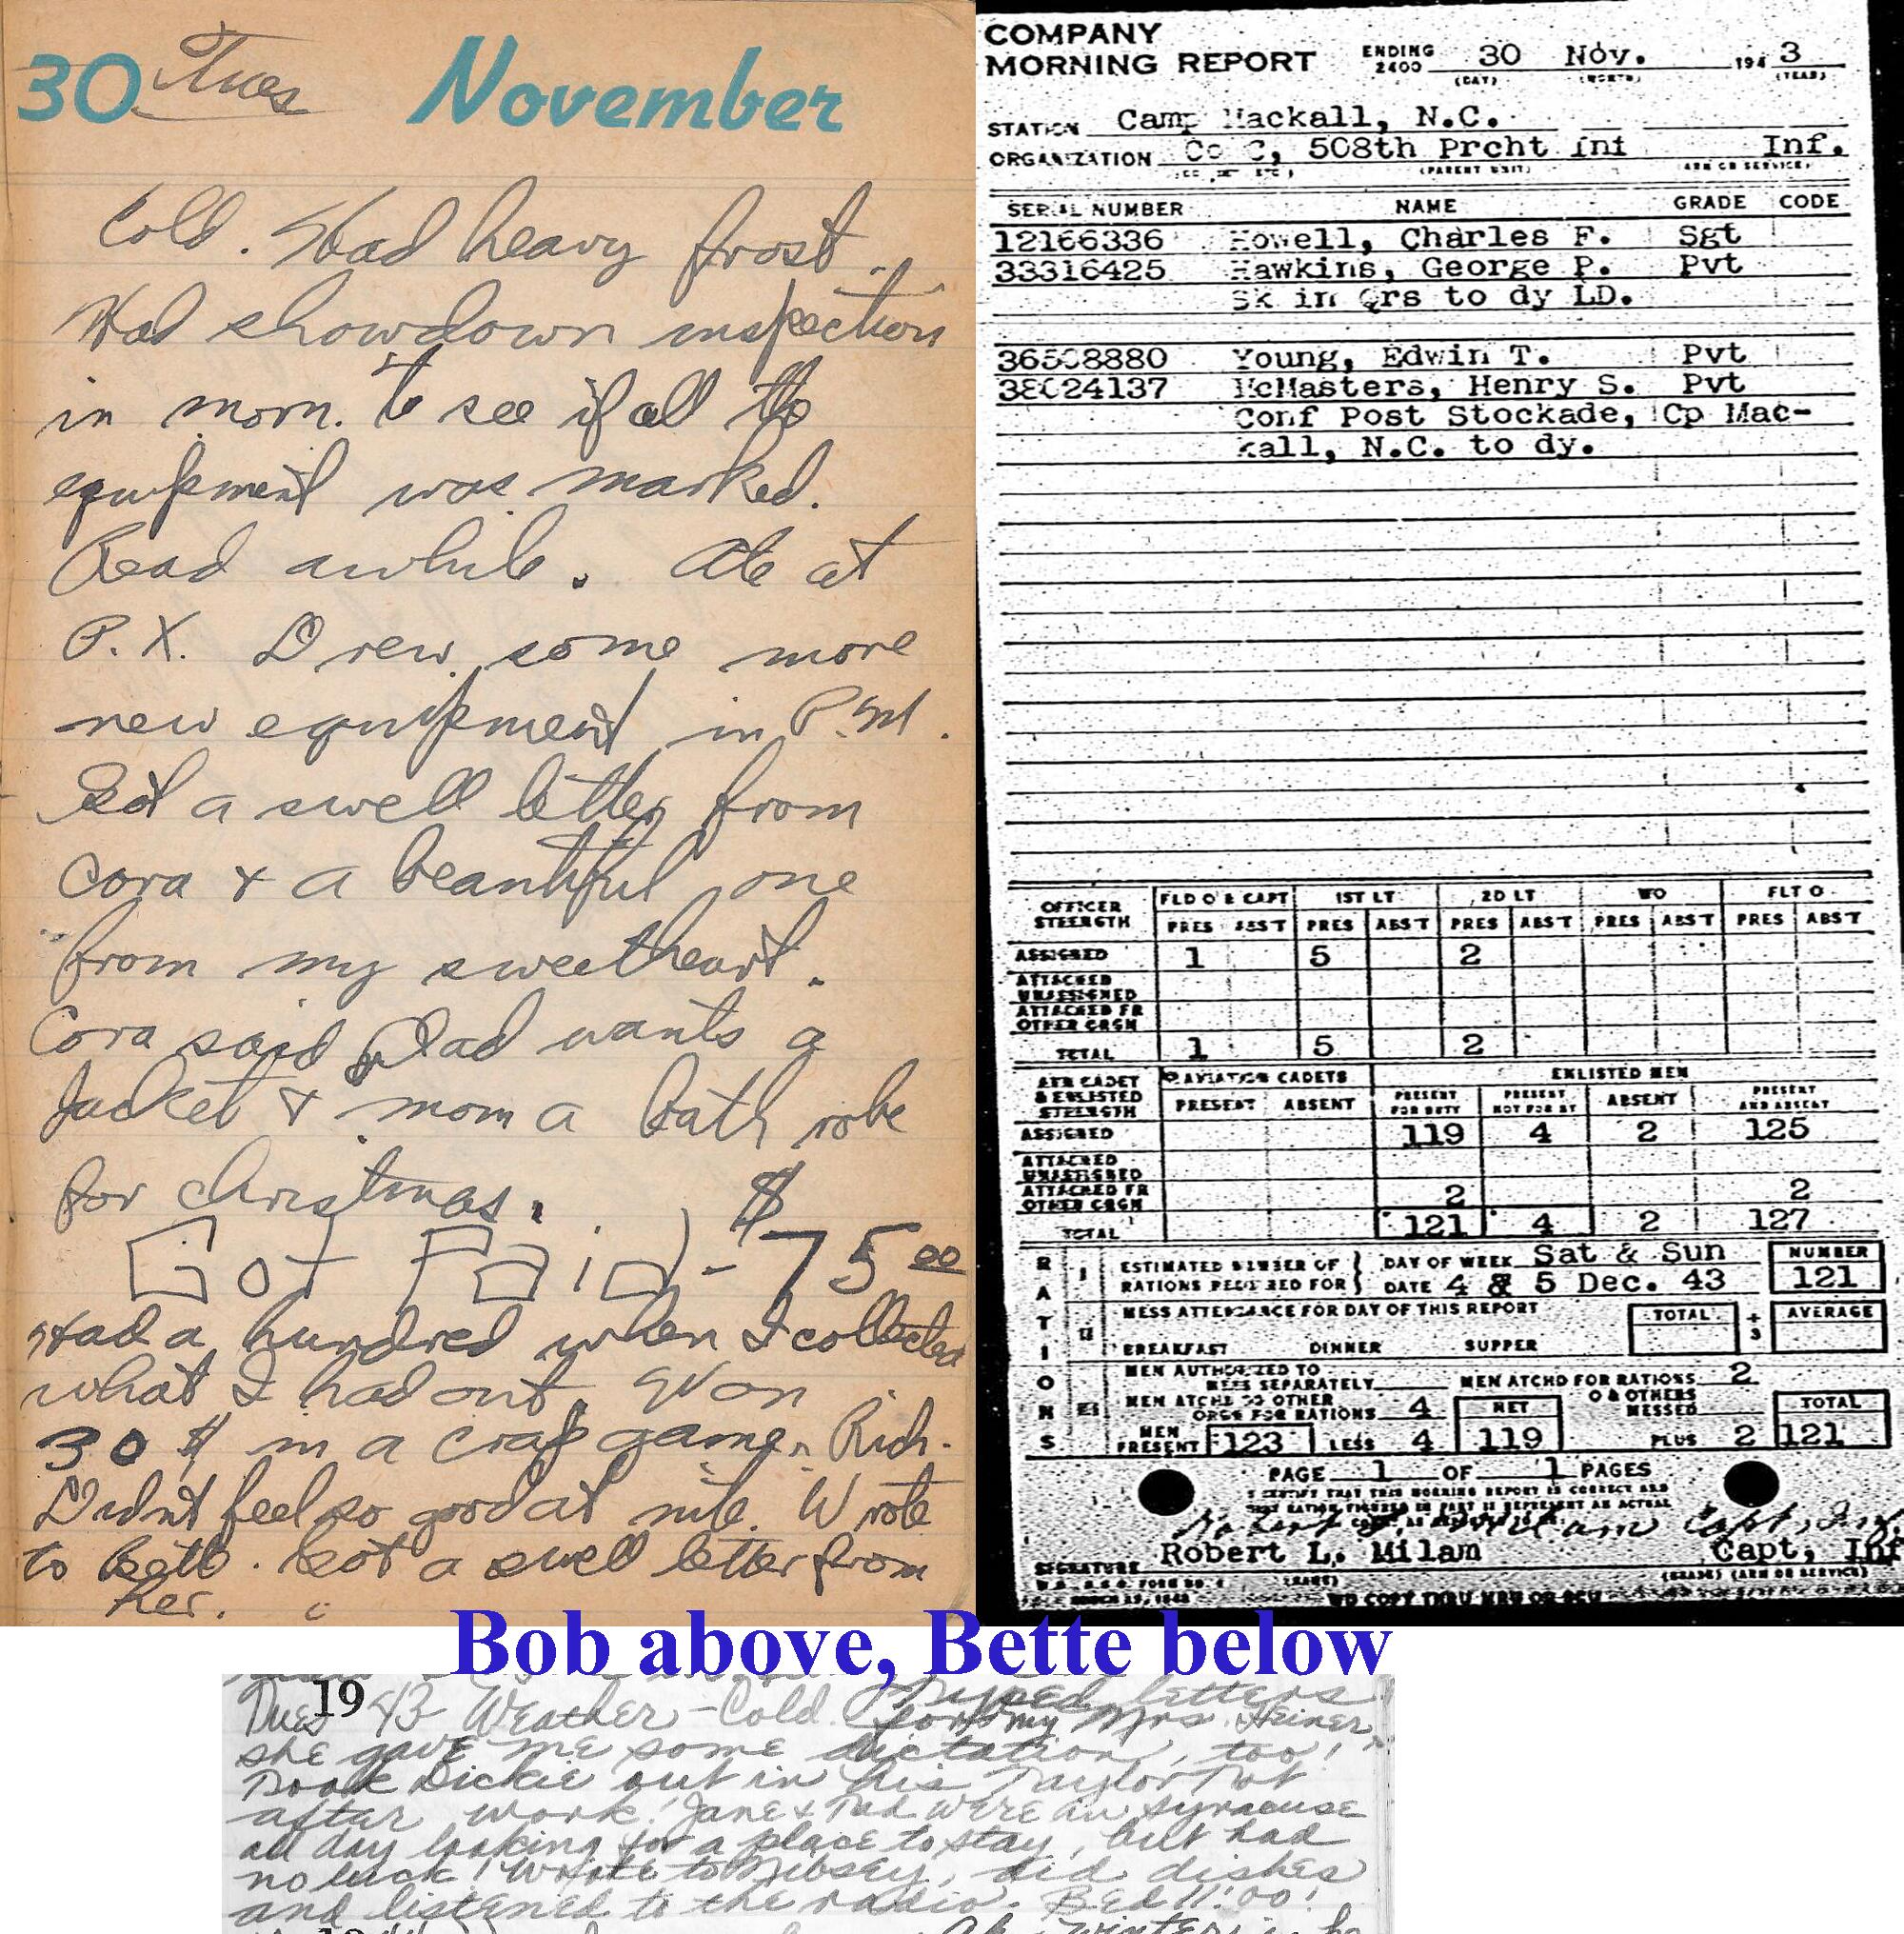 30 Tues November
Cold. Had heavy frost.
Had showdown inspection
in morn. to see if all the
equipment was marked.
Read awhile. Ate at
P.X. Drew some more
new equipment in P.M.
Got a swell letter from
Cora & a beautiful one
from my sweetheart.
Cora said Dad wants a
Jacket & mom a bath robe
for christmas.
Got Paid - $75.00
Had a hundred when I collected
what I had out. Won
30 $ in a crap game. Rich.
Didnt feel so good at nite. Wrote
to Bette. Got a swell letter from
her.
COMPANY
MORNING REPORT ENDING 2400 30 Nov. 194 3
(DAY) (MONTH) (YEAR)
STATION Camp Mackall, N.C.
ORGANIZATION Co C, 508th Prcht Inf Inf.
(PARENT UNIT) (ARM OR SERVICE)
SERIAL NUMBER NAME GRADE CODE
12166336 Howell, Charles F. Sgt
33316425 Hawkins, George P. Pvt
Sk in Qrs to dy LD.
Young, Edwin T. Pvt
McMasters, Henry S. Pvt
Conf Post Stockade, Cp Mac-
kall, N.C. to dy.
OFFICER STRENGTH FLD O & CAPT 1ST LT 2D LT WO FLT O
PRES ABS'T PRES ABS'T PRES ABS'T PRES ABS'T PRES ABS'T
ASSIGNED 1 5 2
ATTACHED UNASSIGNED
ATTACHED FR OTHER ORGN
TOTAL 1 5 2
AVN CADET & ENLISTED STRENGTH AVIATION CADETS ENLISTED MEN
PRESENT ABSENT PRESENT FOR DUTY PRESENT NOT FOR DY ABSENT PRESENT AND ABSENT
ASSIGNED 119 4 2 125
ATTACHED UNASSIGNED
ATTACHED FR OTHER ORGN 2 2
TOTAL 121 4 2 127
RATIONS
I ESTIMATED NUMBER OF RATIONS REQUIRED FOR DAY OF WEEK Sat & Sun NUMBER
DATE 4 & 5 Dec. 43 121
II MESS ATTENDANCE FOR DAY OF THIS REPORT TOTAL ÷ 3 AVERAGE
BREAKFAST DINNER SUPPER
III MEN AUTHORIZED TO MESS SEPARATELY MEN ATCHD FOR RATIONS 2
MEN ATCHD TO OTHER ORGS FOR RATIONS 4 NET O & OTHERS MESSED TOTAL
MEN PRESENT 123 LESS 4 119 PLUS 2 121
PAGE 1 OF 1 PAGES
I CERTIFY THAT THIS MORNING REPORT IS CORRECT AND
Robert L. Milam Capt, Inf
SIGNATURE Robert L. Milam Capt, Inf
(NAME) (GRADE) (ARM OR SERVICE)
WD COPY THRU MRU OR
Bob above, Bette below
Tues 19 43 Weather - Cold. Typed letters
for my Mrs. Heiner,
she gave me some dictation, too!
Took Dickie out in his Taylor Tot
after work! Jane & Tad were in Syracuse
all day looking for a place to stay, but had
no luck! Wrote to Nibsey, did dishes
and listened to the radio. Bed 11:00!